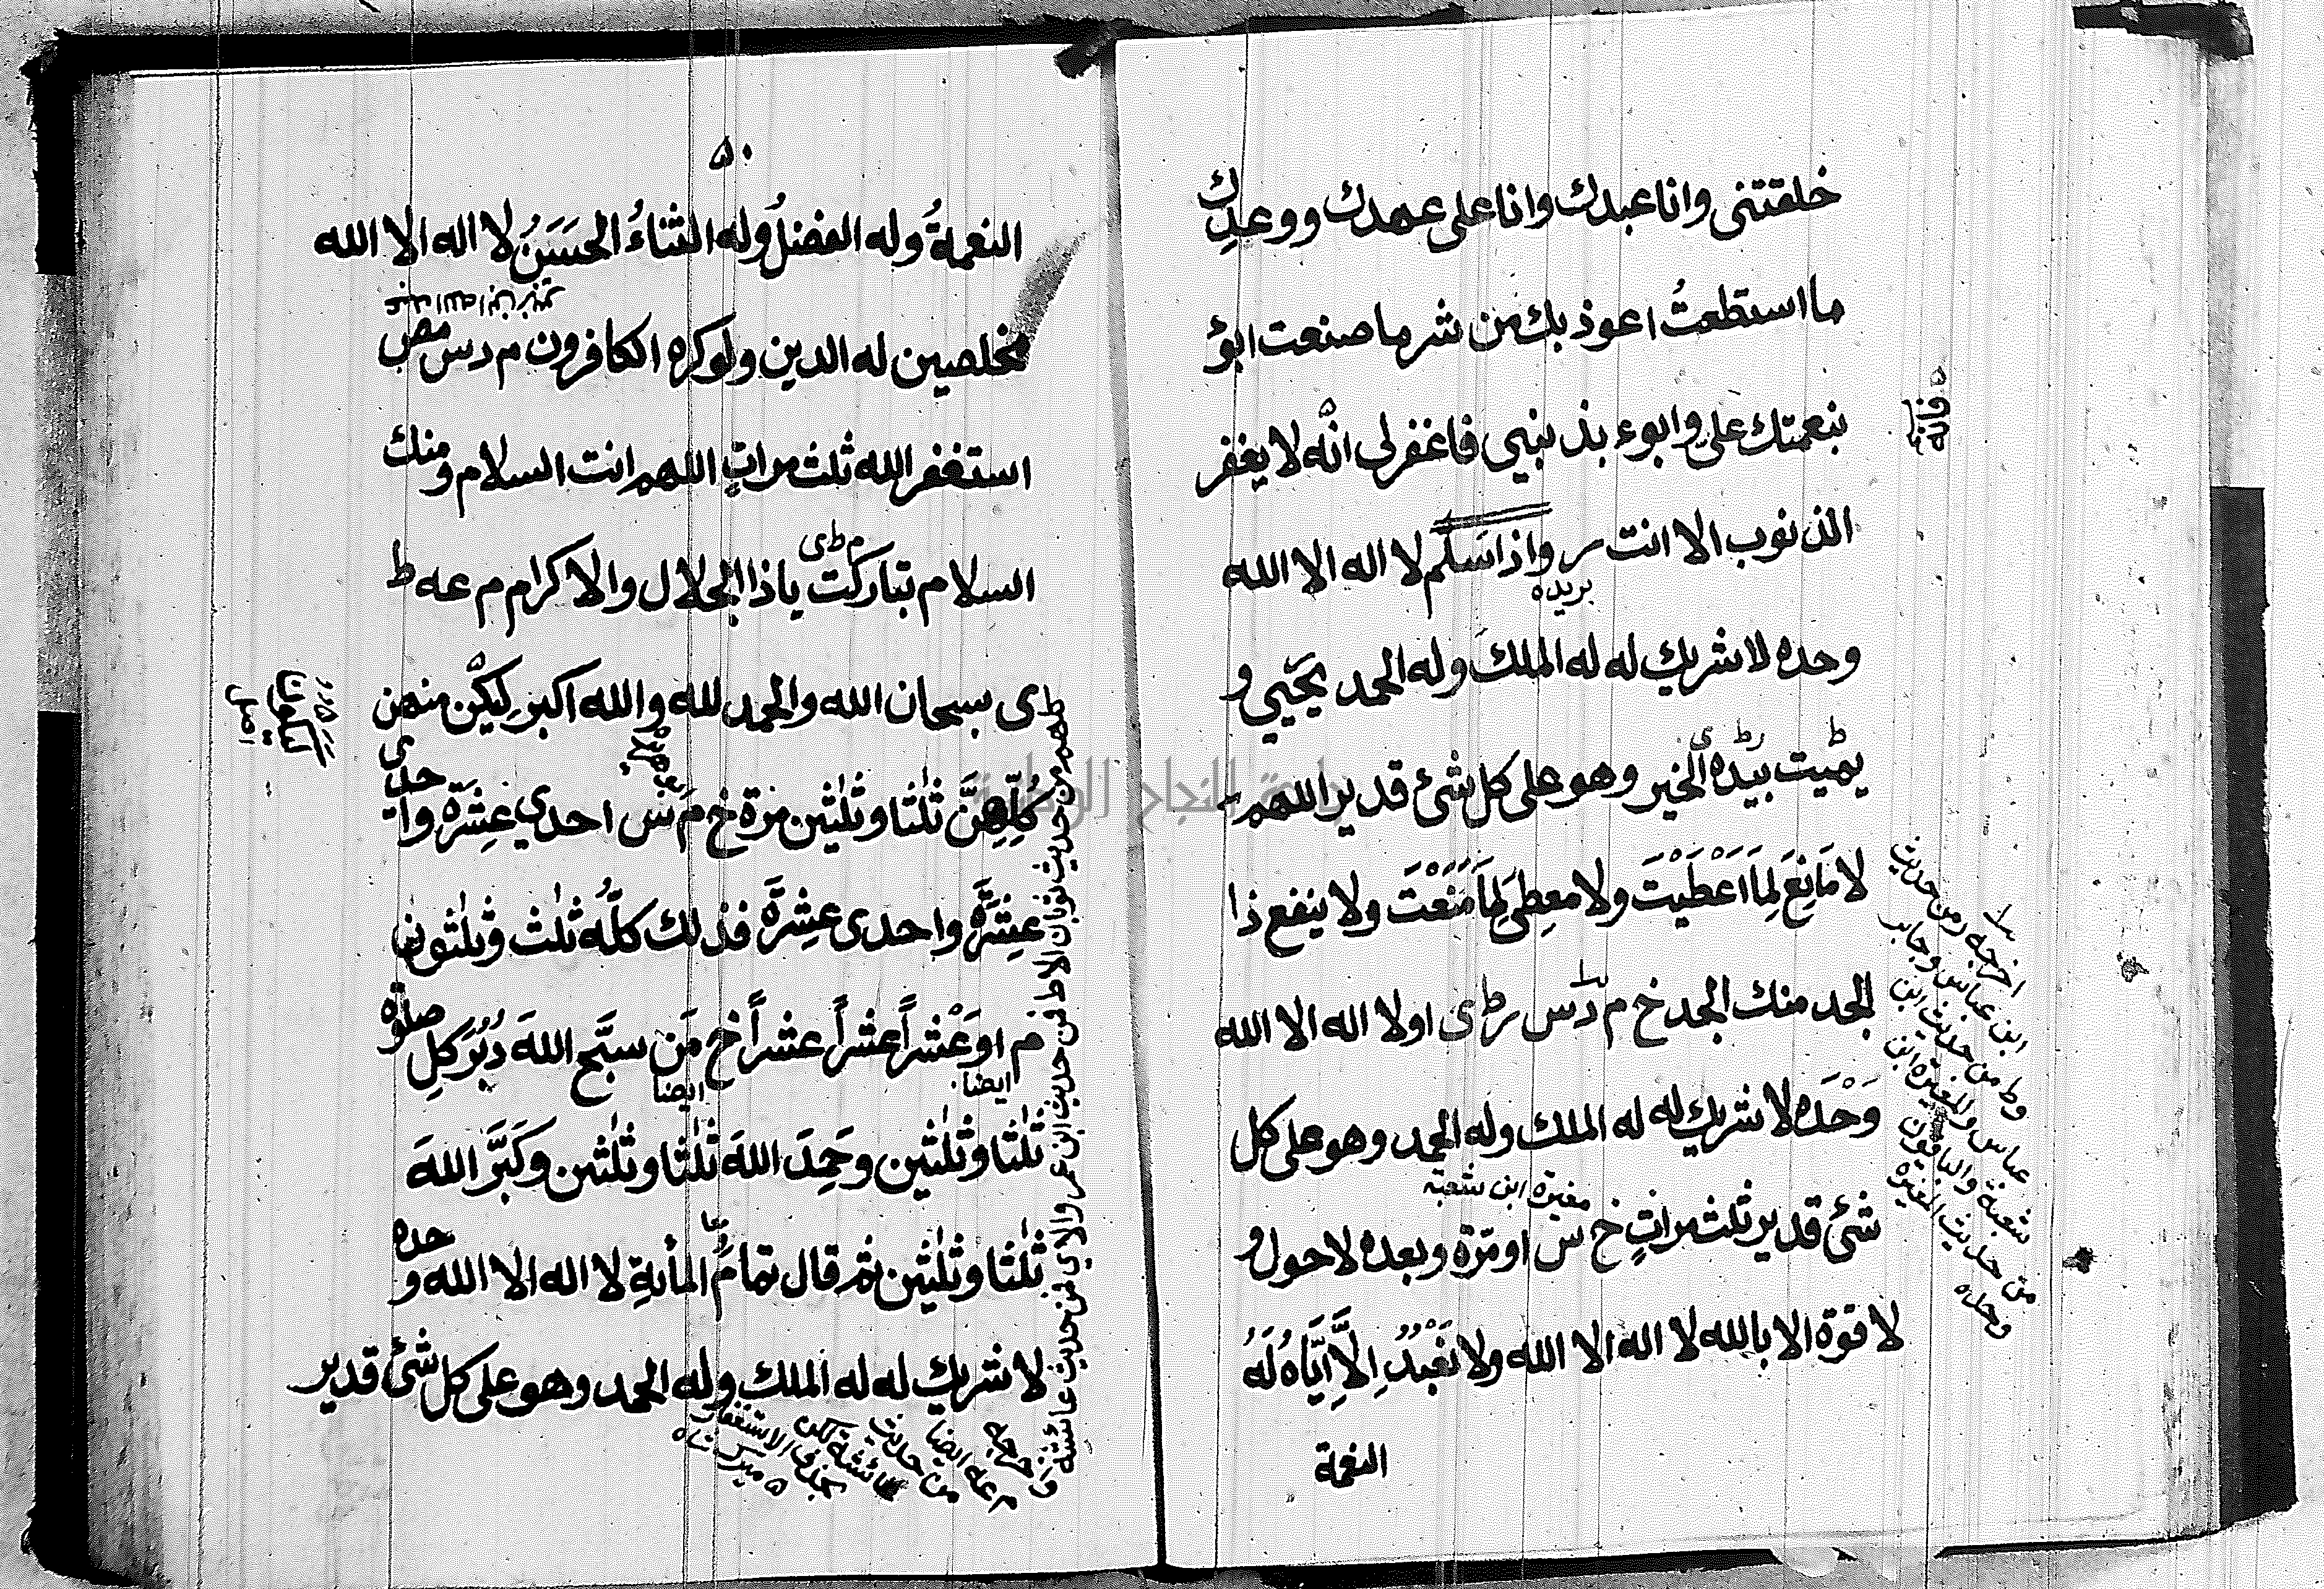 خلقتنى وانا عبدك وانا على عهدك ووعدك
ما استطعتُ اعوذ بك من شر ما صنعت ابوٓء
بنعمتك علىّ وابوء بذ نبي فاغفر لي انّه لا يغفر
فانه
الذنوب الا انت ر واذا سَلَّم لا اله الا الله
بريده
وحده لا شريك له له الملك وله الحمد يُحَيي و
ط ر ط ى
يميت بيده الخير وهو على كل شئ قدير اللهم
لا مَانِعَ لِمَا اَعْطَيْتَ ولا معطِىَ لِمَا مَنَعْتَ ولا ينفع ذا
الجد منك الجد خ م د س ر ط ى او لا اله الا الله
وَحْدَه لا شريك له له الملك وله الحمد وهو على كل
مغيرة ابن شعبة
شئ قدير ثلث مراتٍ خ س او مرّة وبعده لا حول و
لا قوة الا بالله لا اله الا الله ولا نَعْبُدُ اِلَّا اِيَّاهُ لَهُ
النعمة
اخرجه ر من حديث
ابن عباس وجابر
وط من حديث ابن
عباس والمغيرة ابن
شعبة والباقون
من حديث المغيرة
وحده
٥٠
النعمةُ وله الفضلُ وله الثناءُ الحَسَنُ لا اله الا الله
عبد الله ابن زبير
مخلصين له الدين ولو كره الكافرون م د س مص
استغفر الله ثلث مراتٍ اللهم انت السلام ومنك
م ط ى
السلام تباركت ياذا الجلال والاكرام م عه ط
ى سبحان الله والحمد لله والله اكبر ليكن منهن
ليكونا
اصل
كُلِّهِنَّ ثلٰثا وثلٰثين مرة خ م س احدى عِشرَة واحدى
عِشَرَة واحدى عِشِرَة فذلك كلُّه ثلٰث وثلٰثون
م او عَشراً عشراً عشراً خ مَن سبَّح اللهَ دُبُرَ كلِ صلوة
ايضا ايضا
ثلٰثا وثلٰثين وحَمِدَ اللهَ ثلٰثا وثلٰثين وكَبَّرَ اللهَ
ثلٰثا وثلٰثين ثم قال تمامُ المأئةِ لا اله الا الله وحده
لا شريك له له الملك وله الحمد وهو على كل شئ قدير
كلهم من حديث ثوبان الا ط فمن حديث ابن عمر والا ى فمن حديث عائشة
واخرجه
م عه ايضا
من حديث
عائشة لكن
بحذف الاستغفار
ميرك شاه